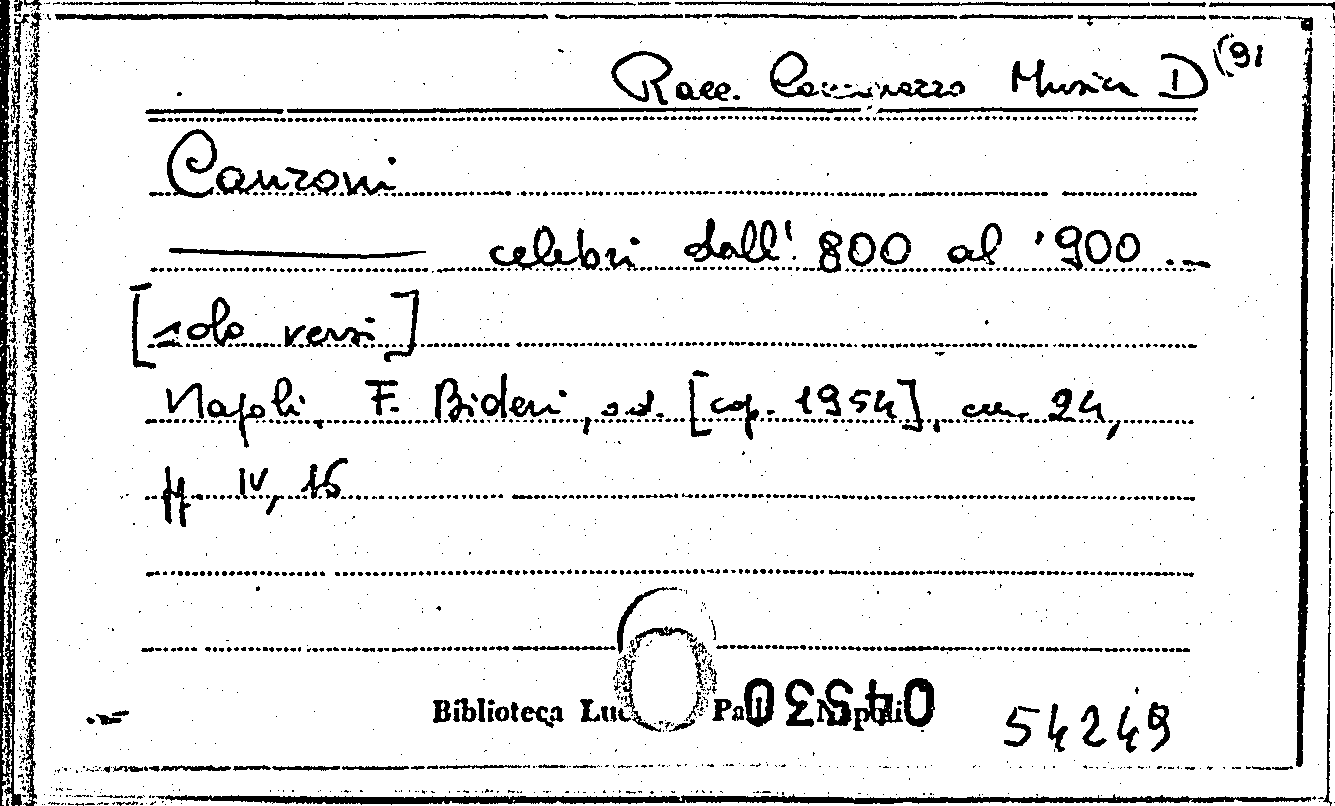 Racc. Musica D (91
Canzoni
celebri dall'800 al '900 ...
[solo versi]
Napoli, F. Bideri, s.d. [cop. 1954], cm. 24,
pp. IV, 16
Biblioteca Napoli
54249